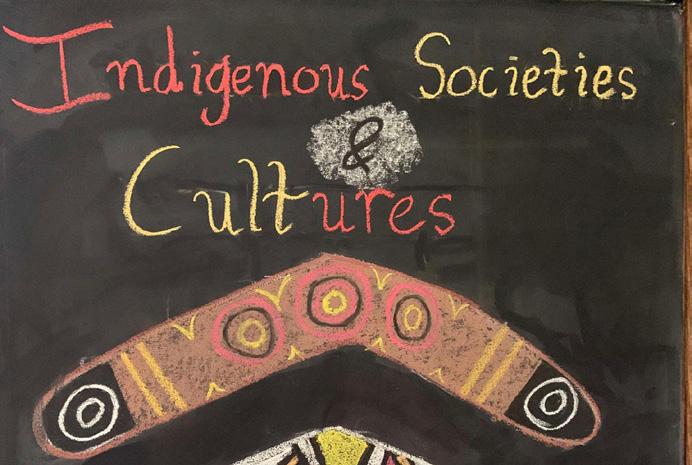 Indigenous Societies
&
Cultures